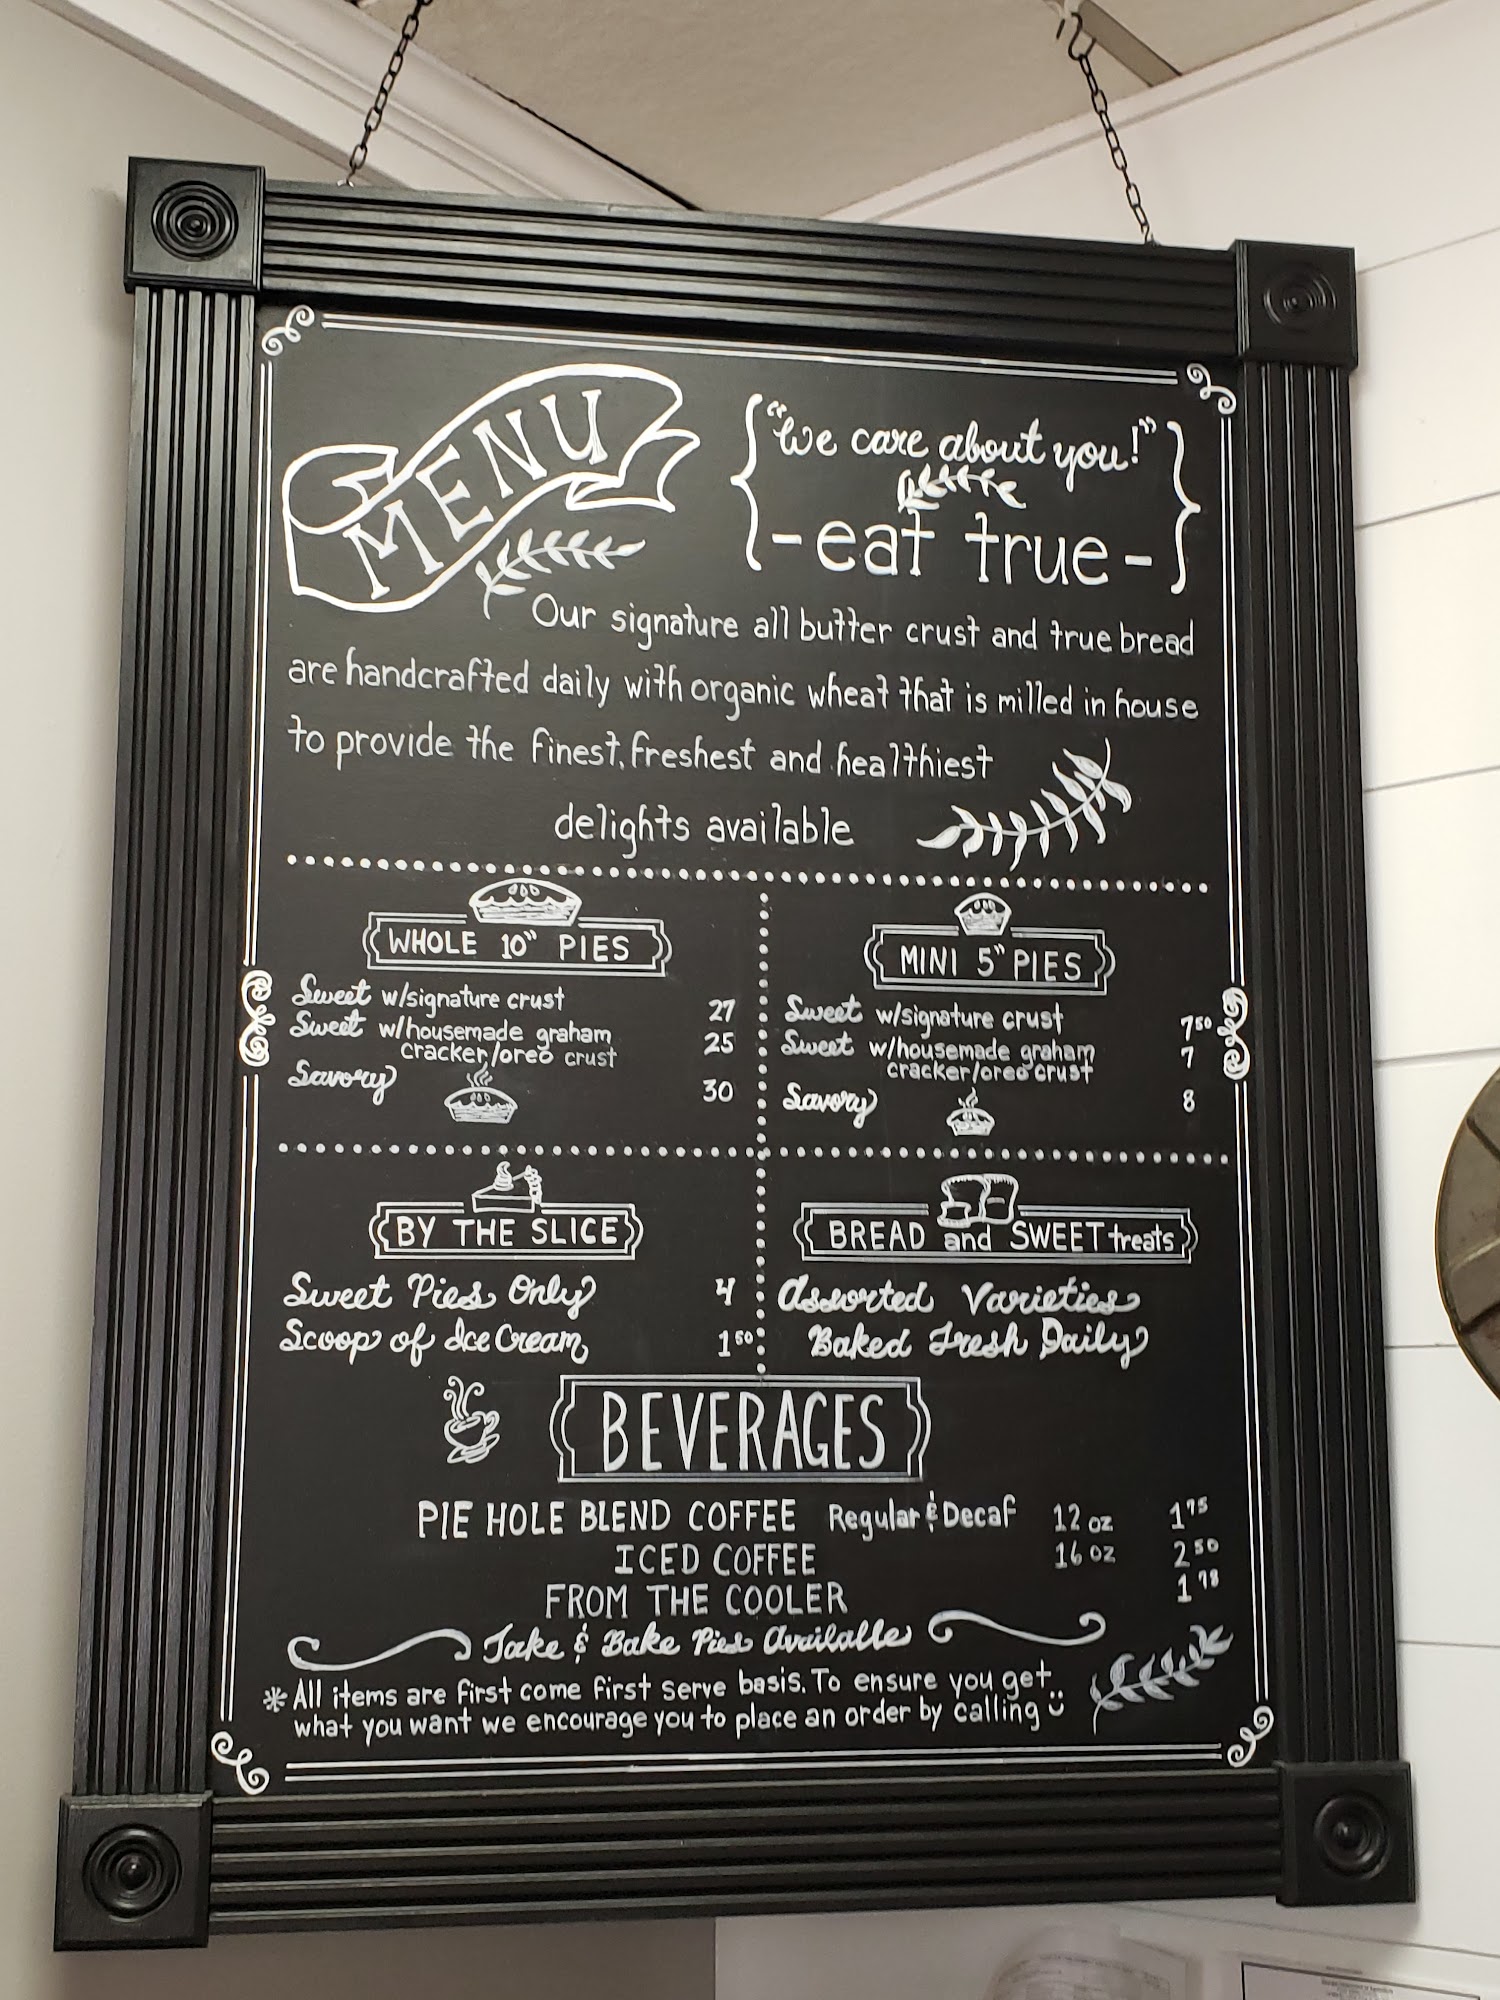 MENU
"We care about you!"
-eat true-
Our signature all butter crust and true bread
are handcrafted daily with organic wheat that is milled in house
to provide the finest, freshest and healthiest
delights available
WHOLE 10" PIES
Sweet w/signature crust 27
Sweet w/housemade graham 25
cracker/oreo crust
Savory 30
MINI 5" PIES
Sweet w/signature crust 7⁵⁰
Sweet w/housemade graham 7
cracker/oreo crust
Savory 8
BY THE SLICE
Sweet Pies Only 4
Scoop of Ice Cream 1⁵⁰
BREAD and SWEET treats
Assorted Varieties
Baked Fresh Daily
BEVERAGES
PIE HOLE BLEND COFFEE Regular & Decaf 12 oz 1⁷⁵
ICED COFFEE 16 oz 2⁵⁰
FROM THE COOLER 1⁷⁸
Take & Bake Pies Available
*All items are first come first serve basis. To ensure you get
what you want we encourage you to place an order by calling